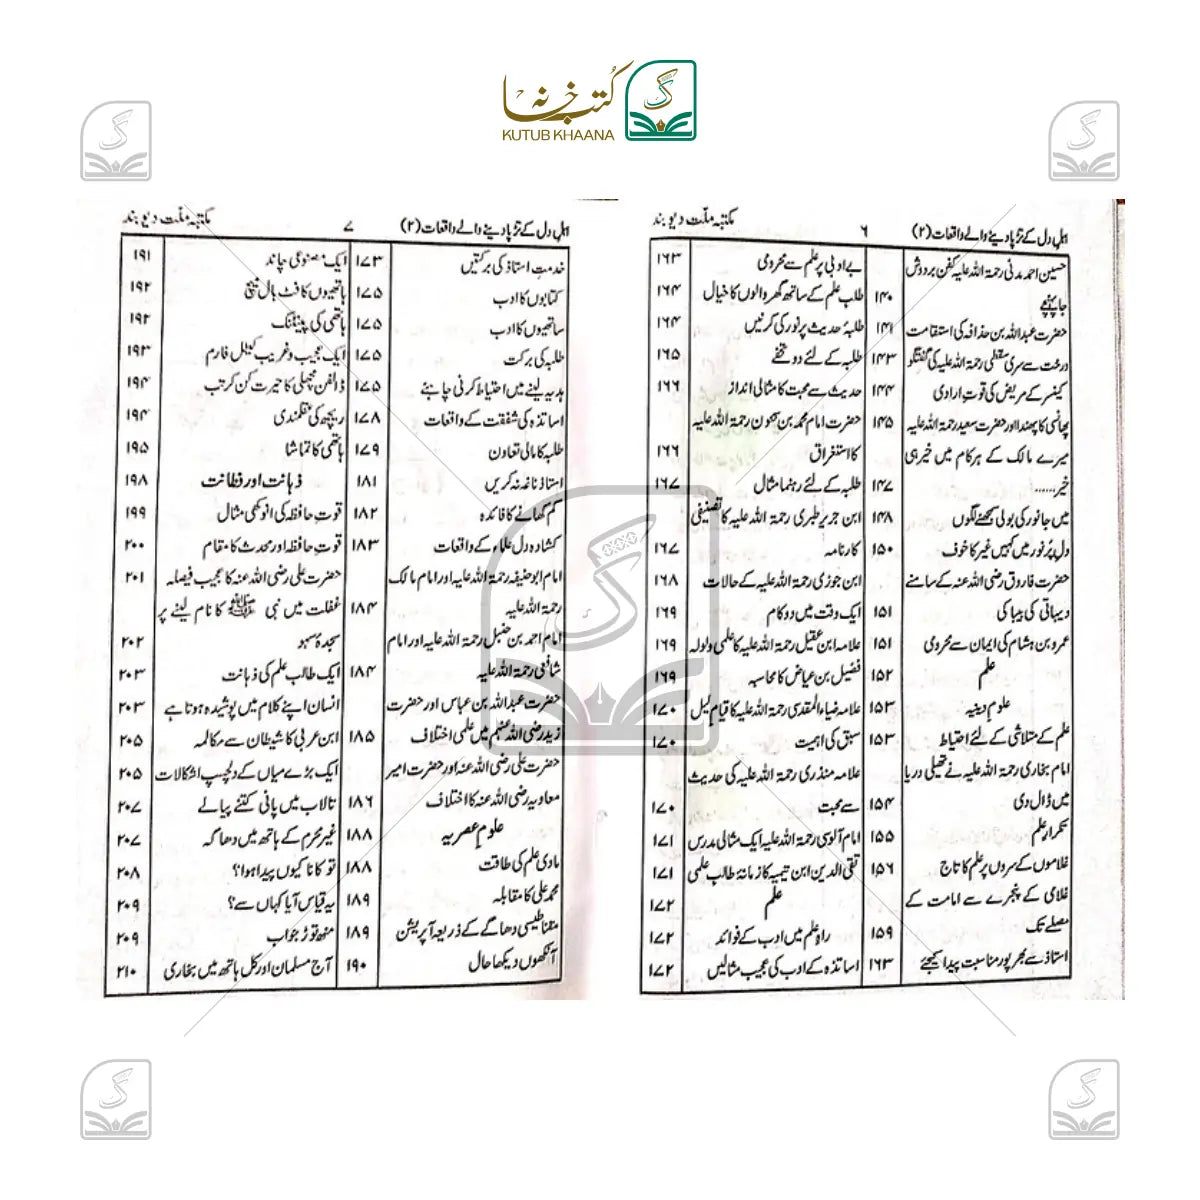 کتب خانہ
KUTUB KHAANA
اہل دل کے تڑپا دینے والے واقعات (۲) ۶ مکتبہ ملت دیوبند
حسین احمد مدنی رحمۃ اللہ علیہ کفن بردوش
جا پہنچے ۱۴۰
حضرت عبداللہ بن حذافہ کی استقامت ۱۴۱
درخت سے سری سقطی رحمۃ اللہ علیہ کی گفتگو ۱۴۳
کینسر کے مریض کی قوتِ ارادی ۱۴۴
پھانسی کا پھندا اور حضرت سعید رحمۃ اللہ علیہ ۱۴۵
میرے مالک کے ہر کام میں خیر ہی
خیر...... ۱۴۷
میں جانور کی بولی سمجھنے لگوں ۱۴۸
دلِ پُرنور میں کہیں غیر کا خوف ۱۵۰
حضرت فاروق رضی اللہ عنہ کے سامنے
دیہاتی کی بیباکی ۱۵۱
عمرو بن ہشام کی ایمان سے محرومی ۱۵۱
علم ۱۵۲
علومِ دینیہ ۱۵۳
علم کے متلاشی کے لئے احتیاط ۱۵۳
امام بخاری رحمۃ اللہ علیہ نے تھیلی دریا
میں ڈال دی ۱۵۴
تکرارِ علم ۱۵۵
غلاموں کے سروں پر علم کا تاج ۱۵۶
غلامی کے پنجرے سے امامت کے
مصلے تک ۱۵۹
استاذ سے بھرپور مناسبت پیدا کیجئے ۱۶۳
بے ادبی پر علم سے محرومی ۱۶۳
طلب علم کے ساتھ گھر والوں کا خیال ۱۶۴
طلبۂ حدیث پر نور کی کرنیں ۱۶۴
طلبہ کے لئے دو تحفے ۱۶۵
حدیث سے محبت کا مثالی انداز ۱۶۶
حضرت امام محمد بن سحنون رحمۃ اللہ علیہ
کا استغراق ۱۶۶
طلبہ کے لئے رہنما مثال ۱۶۷
ابن جریر طبری رحمۃ اللہ علیہ کا تصنیفی
کارنامہ ۱۶۷
ابن جوزی رحمۃ اللہ علیہ کے حالات ۱۶۸
ایک وقت میں دو کام ۱۶۹
علامہ ابن عقیل رحمۃ اللہ علیہ کا علمی ولولہ ۱۶۹
فضیل بن عیاض کا محاسبہ ۱۶۹
علامہ ضیاء المقدسی رحمۃ اللہ علیہ کا قیام لیل ۱۷۰
سبق کی اہمیت ۱۷۰
علامہ منذری رحمۃ اللہ علیہ کی حدیث
سے محبت ۱۷۰
امام آلوسی رحمۃ اللہ علیہ ایک مثالی مدرس ۱۷۱
تقی الدین ابن تیمیہ کا زمانۂ طالب علمی ۱۷۱
علم ۱۷۲
راہِ علم میں ادب کے فوائد ۱۷۲
اساتذہ کے ادب کی عجیب مثالیں ۱۷۲
اہل دل کے تڑپا دینے والے واقعات (۲) ۷ مکتبہ ملت دیوبند
خدمتِ استاذ کی برکتیں ۱۷۳
کتابوں کا ادب ۱۷۵
ساتھیوں کا ادب ۱۷۵
طلبہ کی برکت ۱۷۵
ہدیہ لینے میں احتیاط کرنی چاہئے ۱۷۵
اساتذہ کی شفقت کے واقعات ۱۷۸
طلبہ کا مالی تعاون ۱۷۹
استاذ ناغہ نہ کریں ۱۸۱
کم کھانے کا فائدہ ۱۸۲
کشادہ دل علماء کے واقعات ۱۸۳
امام ابوحنیفہ رحمۃ اللہ علیہ اور امام مالک
رحمۃ اللہ علیہ ۱۸۴
امام احمد بن حنبل رحمۃ اللہ علیہ اور امام
شافعی رحمۃ اللہ علیہ ۱۸۴
حضرت عبداللہ بن عباس اور حضرت
زید رضی اللہ عنہم میں علمی اختلاف ۱۸۵
حضرت علی رضی اللہ عنہ اور حضرت امیر
معاویہ رضی اللہ عنہ کا اختلاف ۱۸۶
علومِ عصریہ ۱۸۸
مادی علم کی طاقت ۱۸۸
محمد علی کا مقابلہ ۱۸۹
مقناطیسی دھاگے کے ذریعہ آپریشن ۱۸۹
آنکھوں دیکھا حال ۱۹۰
ایک مصنوعی چاند ۱۹۱
ہاتھیوں کا فٹ بال میچ ۱۹۲
ہاتھی کی پینٹنگ ۱۹۲
ایک عجیب وغریب کیٹل فارم ۱۹۳
ڈالفن مچھلی کا حیرت کن کرتب ۱۹۴
ریچھ کی عقلمندی ۱۹۴
ہاتھی کا تماشا ۱۹۵
ذہانت اور فطانت ۱۹۸
قوتِ حافظہ کی انوکھی مثال ۱۹۹
قوتِ حافظہ اور محدث کا مقام ۲۰۰
حضرت علی رضی اللہ عنہ کا عجیب فیصلہ ۲۰۱
غفلت میں نبی ﷺ کا نام لینے پر
سجدۂ سہو ۲۰۲
ایک طالب علم کی ذہانت ۲۰۳
انسان اپنے کلام میں پوشیدہ ہوتا ہے ۲۰۳
ابن عربی کا شیطان سے مکالمہ ۲۰۵
ایک بڑے میاں کے دلچسپ اشکالات ۲۰۵
تالاب میں پانی کتنے پیالے ۲۰۷
غیر محرم کے ہاتھ میں دھاگہ ۲۰۷
تو کانا کیوں پیدا ہوا؟ ۲۰۸
یہ قیاس آیا کہاں سے؟ ۲۰۹
منھ توڑ جواب ۲۰۹
آج مسلمان اور کل ہاتھ میں بخاری ۲۱۰